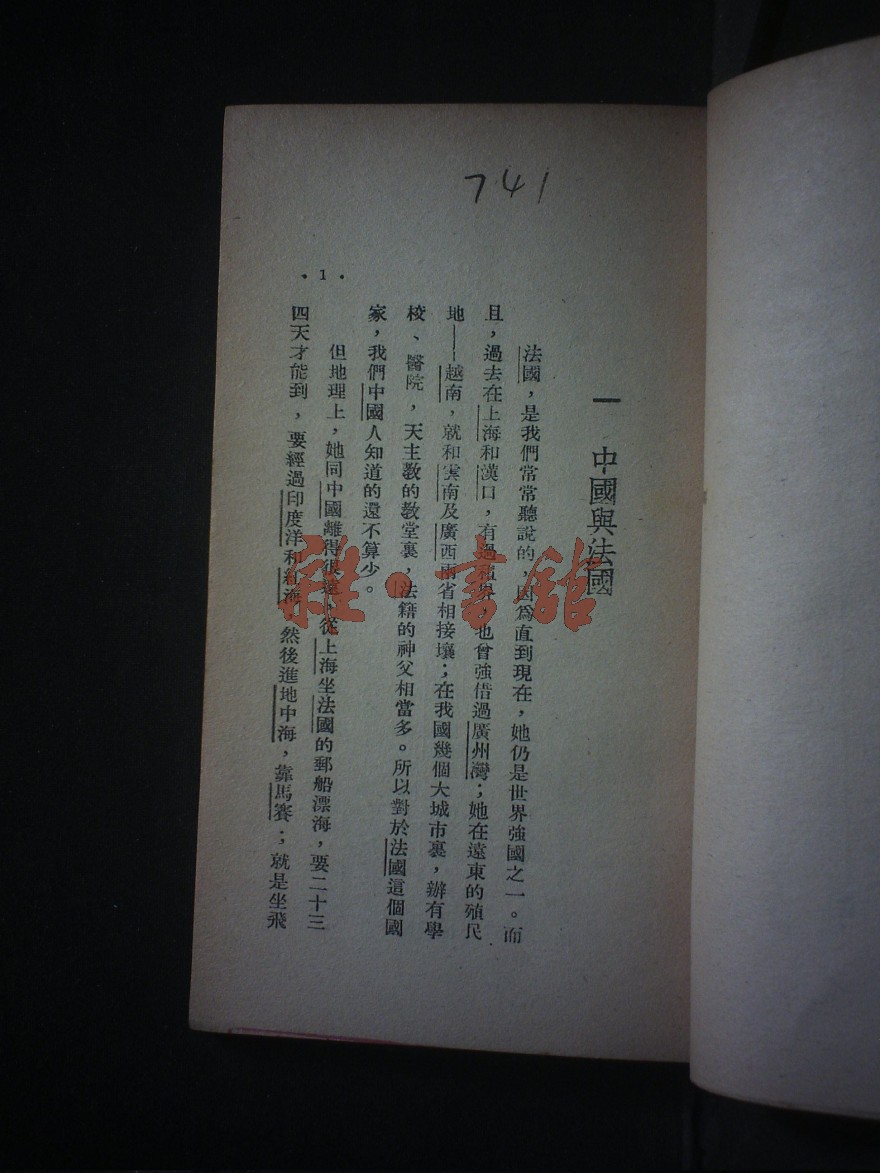 741
一 中國與法國
法國，是我們常常聽說的，因爲直到現在，她仍是世界強國之一。而
且，過去在上海和漢口，有過租界，也曾強借過廣州灣；她在遠東的殖民
地——越南，就和雲南及廣西兩省相接壤；在我國幾個大城市裏，辦有學
校、醫院，天主教的教堂裏，法籍的神父相當多。所以對於法國這個國
家，我們中國人知道的還不算少。
但地理上，她同中國離得很遠，從上海坐法國的郵船漂海，要二十三
四天才能到，要經過印度洋和紅海，然後進地中海，靠馬賽；就是坐飛
·1·
雜·書館